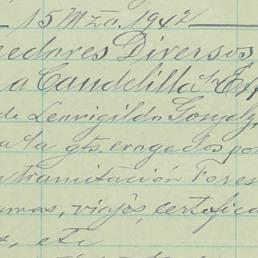 15 Mzo. 1942
eedores Diversos
a Candelilla
de Leovigildo Gonzlz
a la gts. erogados por
ntramitación Fores
amas, viajes, certifica
s, etc